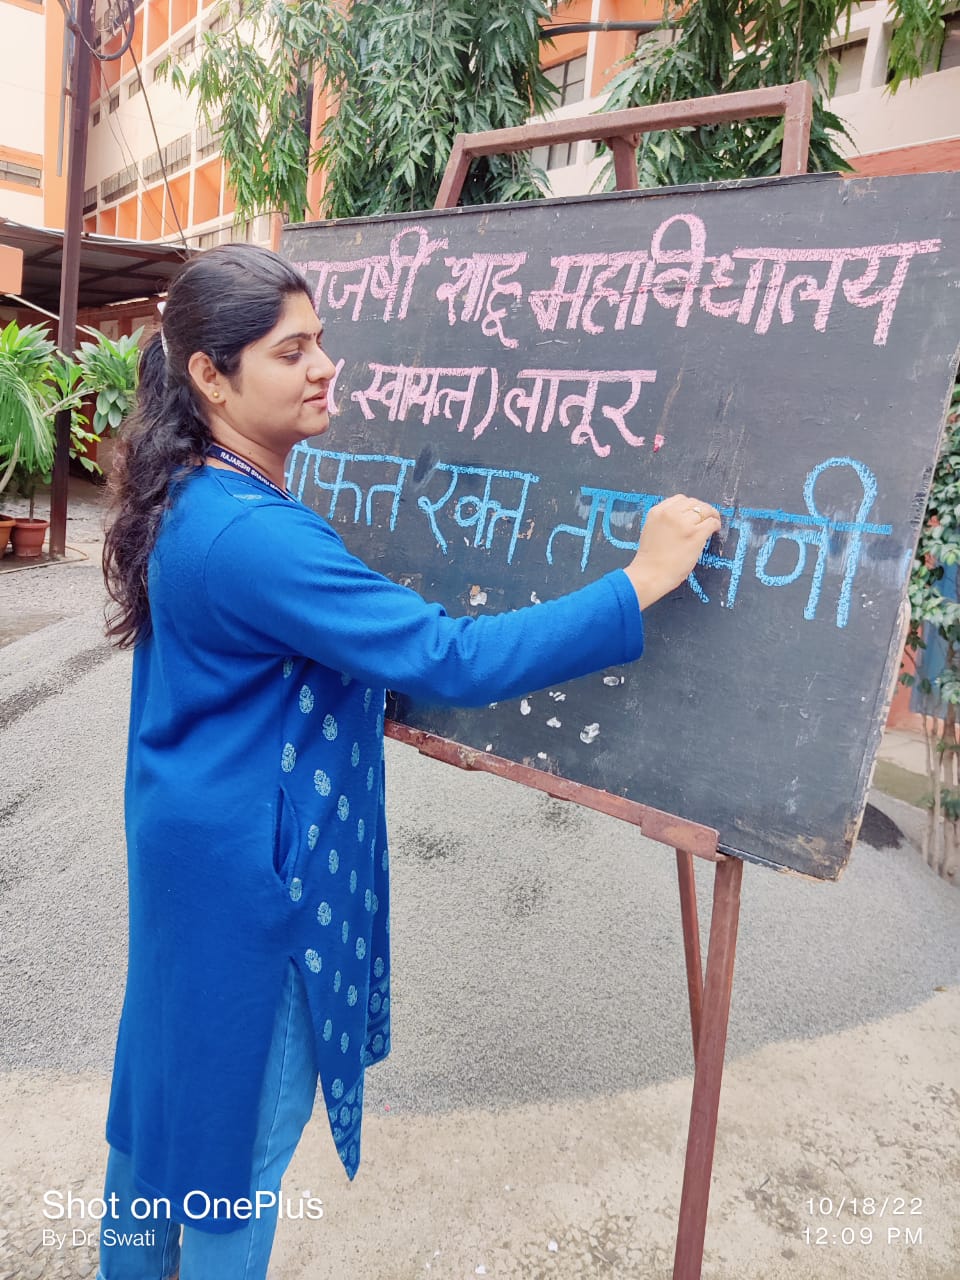 राजर्षी शाहू महाविद्यालय
(स्वायत्त) लातूर.
मोफत रक्त तपासणी
RAJARSHI SHAHU
Shot on OnePlus
By Dr. Swati
10/18/22
12:09 PM